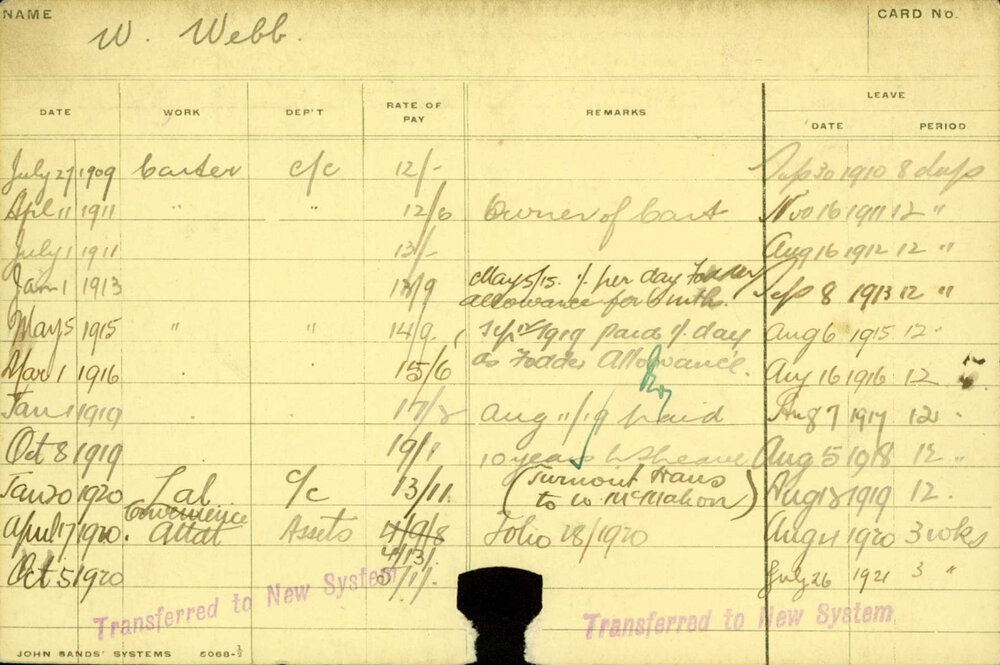 NAME W. Webb. CARD No.
DATE WORK DEP'T RATE OF PAY REMARKS LEAVE
DATE PERIOD
July 27 1909 Carter C/C 12/- Sep 30 1910 8 days
Apl 11 1911 " " 12/6 Owner of Cart Nov 16 1911 12 "
July 1 1911 13/- Aug 16 1912 12 "
Jan 1 1913 13/9 May 5/15. 1/ per day Fodder Sep 8 1913 12 "
allowance for 6 mth.
May 5 1915 " " 14/9 1919 paid 1/ day Aug 6 1915 12 "
Mar 1 1916 15/6 as Fodder Allowance. Aug 16 1916 12
Jan 1 1919 17/8 Aug 11/19 paid Aug 7 1917 12
Oct 8 1919 19/1 10 years Aug 5 1918 12 "
Jan 20 1920 Lab C/C 13/11 (Turnout Trans Aug 18 1919 12.
to W. McMahon)
April 17 1920. Convenience Attdt Assets 4/9/8 Folio 28/1920 Aug 1920 3 wks
4/13/
Oct 5 1920 July 26 1921 3 "
Transferred to New System Transferred to New System
JOHN SANDS' SYSTEMS 6068-½